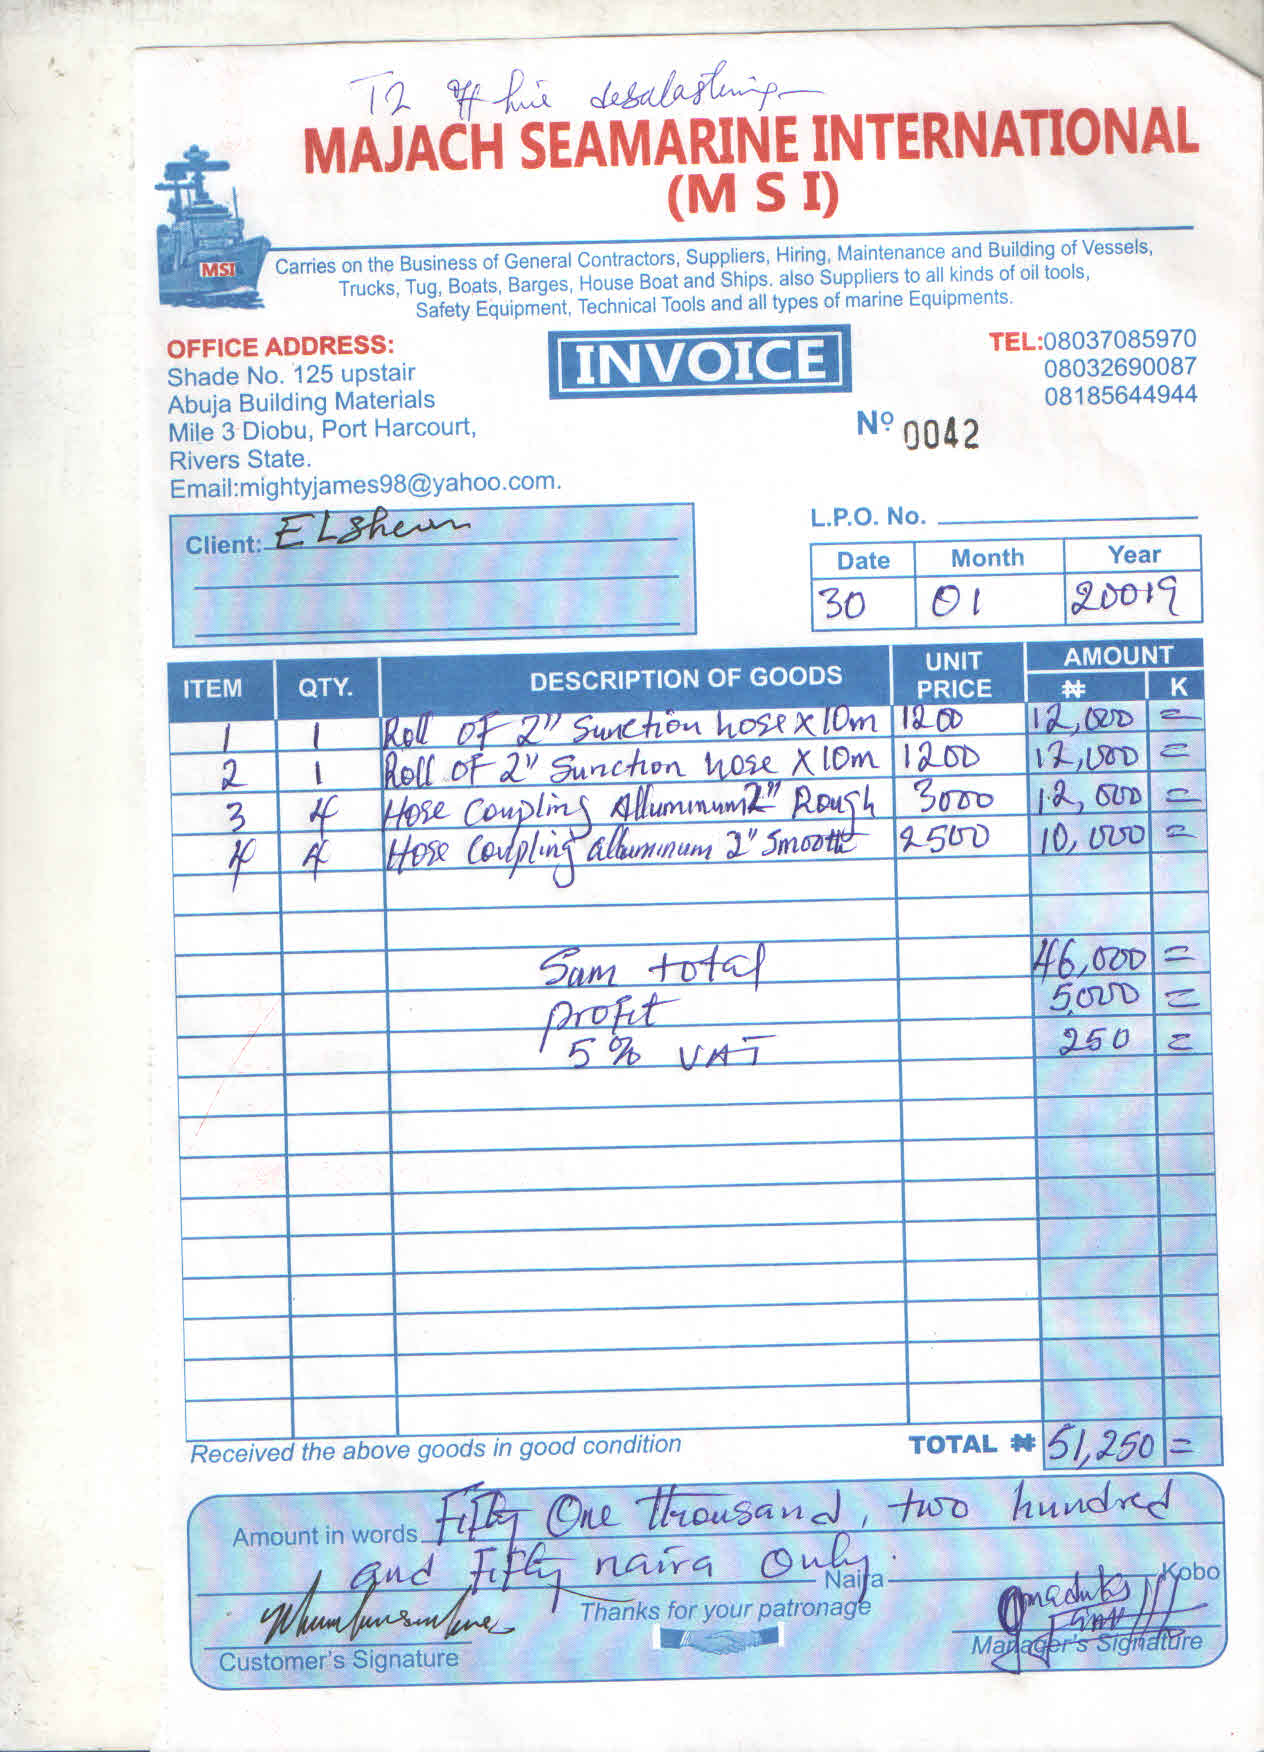 T2 off hire debalasting
MAJACH SEAMARINE INTERNATIONAL
(M S I)
MSI
Carries on the Business of General Contractors, Suppliers, Hiring, Maintenance and Building of Vessels,
Trucks, Tug, Boats, Barges, House Boat and Ships. also Suppliers to all kinds of oil tools,
Safety Equipment, Technical Tools and all types of marine Equipments.
OFFICE ADDRESS:
Shade No. 125 upstair
Abuja Building Materials
Mile 3 Diobu, Port Harcourt,
Rivers State.
Email:mightyjames98@yahoo.com.
INVOICE
TEL:08037085970
08032690087
08185644944
Nº 0042
Client:
L.P.O. No.
Date Month Year
30 01 20019
ITEM QTY. DESCRIPTION OF GOODS UNIT PRICE AMOUNT ₦ K
1 1 Roll OF 2" Sunction hose x 10m 1200 12,000 =
2 1 Roll OF 2" Sunction hose x 10m 1200 12,000 =
3 4 Hose Coupling Alluminum 2" Rough 3000 12,000 =
4 4 Hose Coupling alluminum 2" Smooth 2500 10,000 =
Sum total 46,000 =
profit 5,000 =
5% VAT 250 =
Received the above goods in good condition TOTAL ₦ 51,250 =
Amount in words Fifty One thousand, two hundred
and Fifty naira Only. Naira Kobo
Thanks for your patronage
Customer's Signature
Manager's Signature